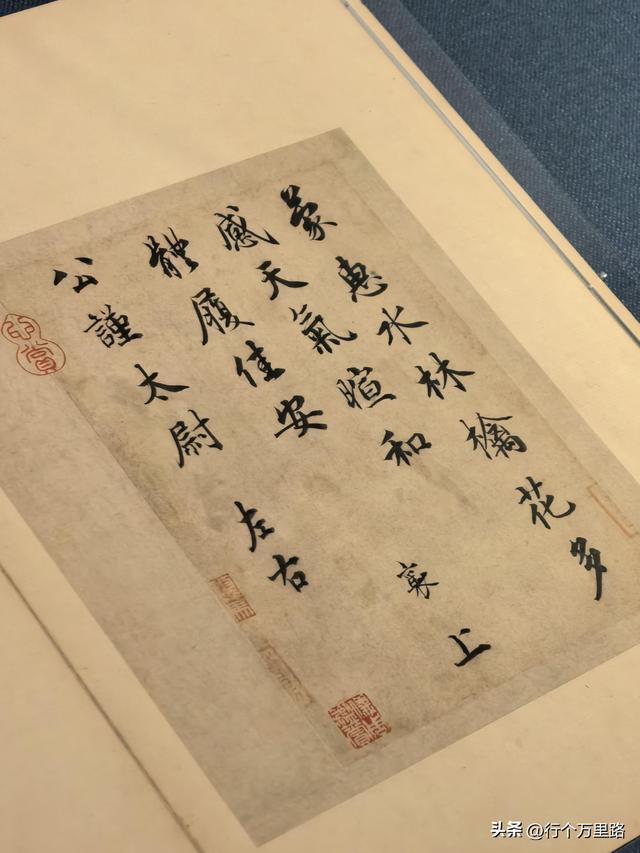 蒙惠水林檎花多
感天氣暄和
體履佳安 襄上
公謹太尉 左右
头条 @行个万里路